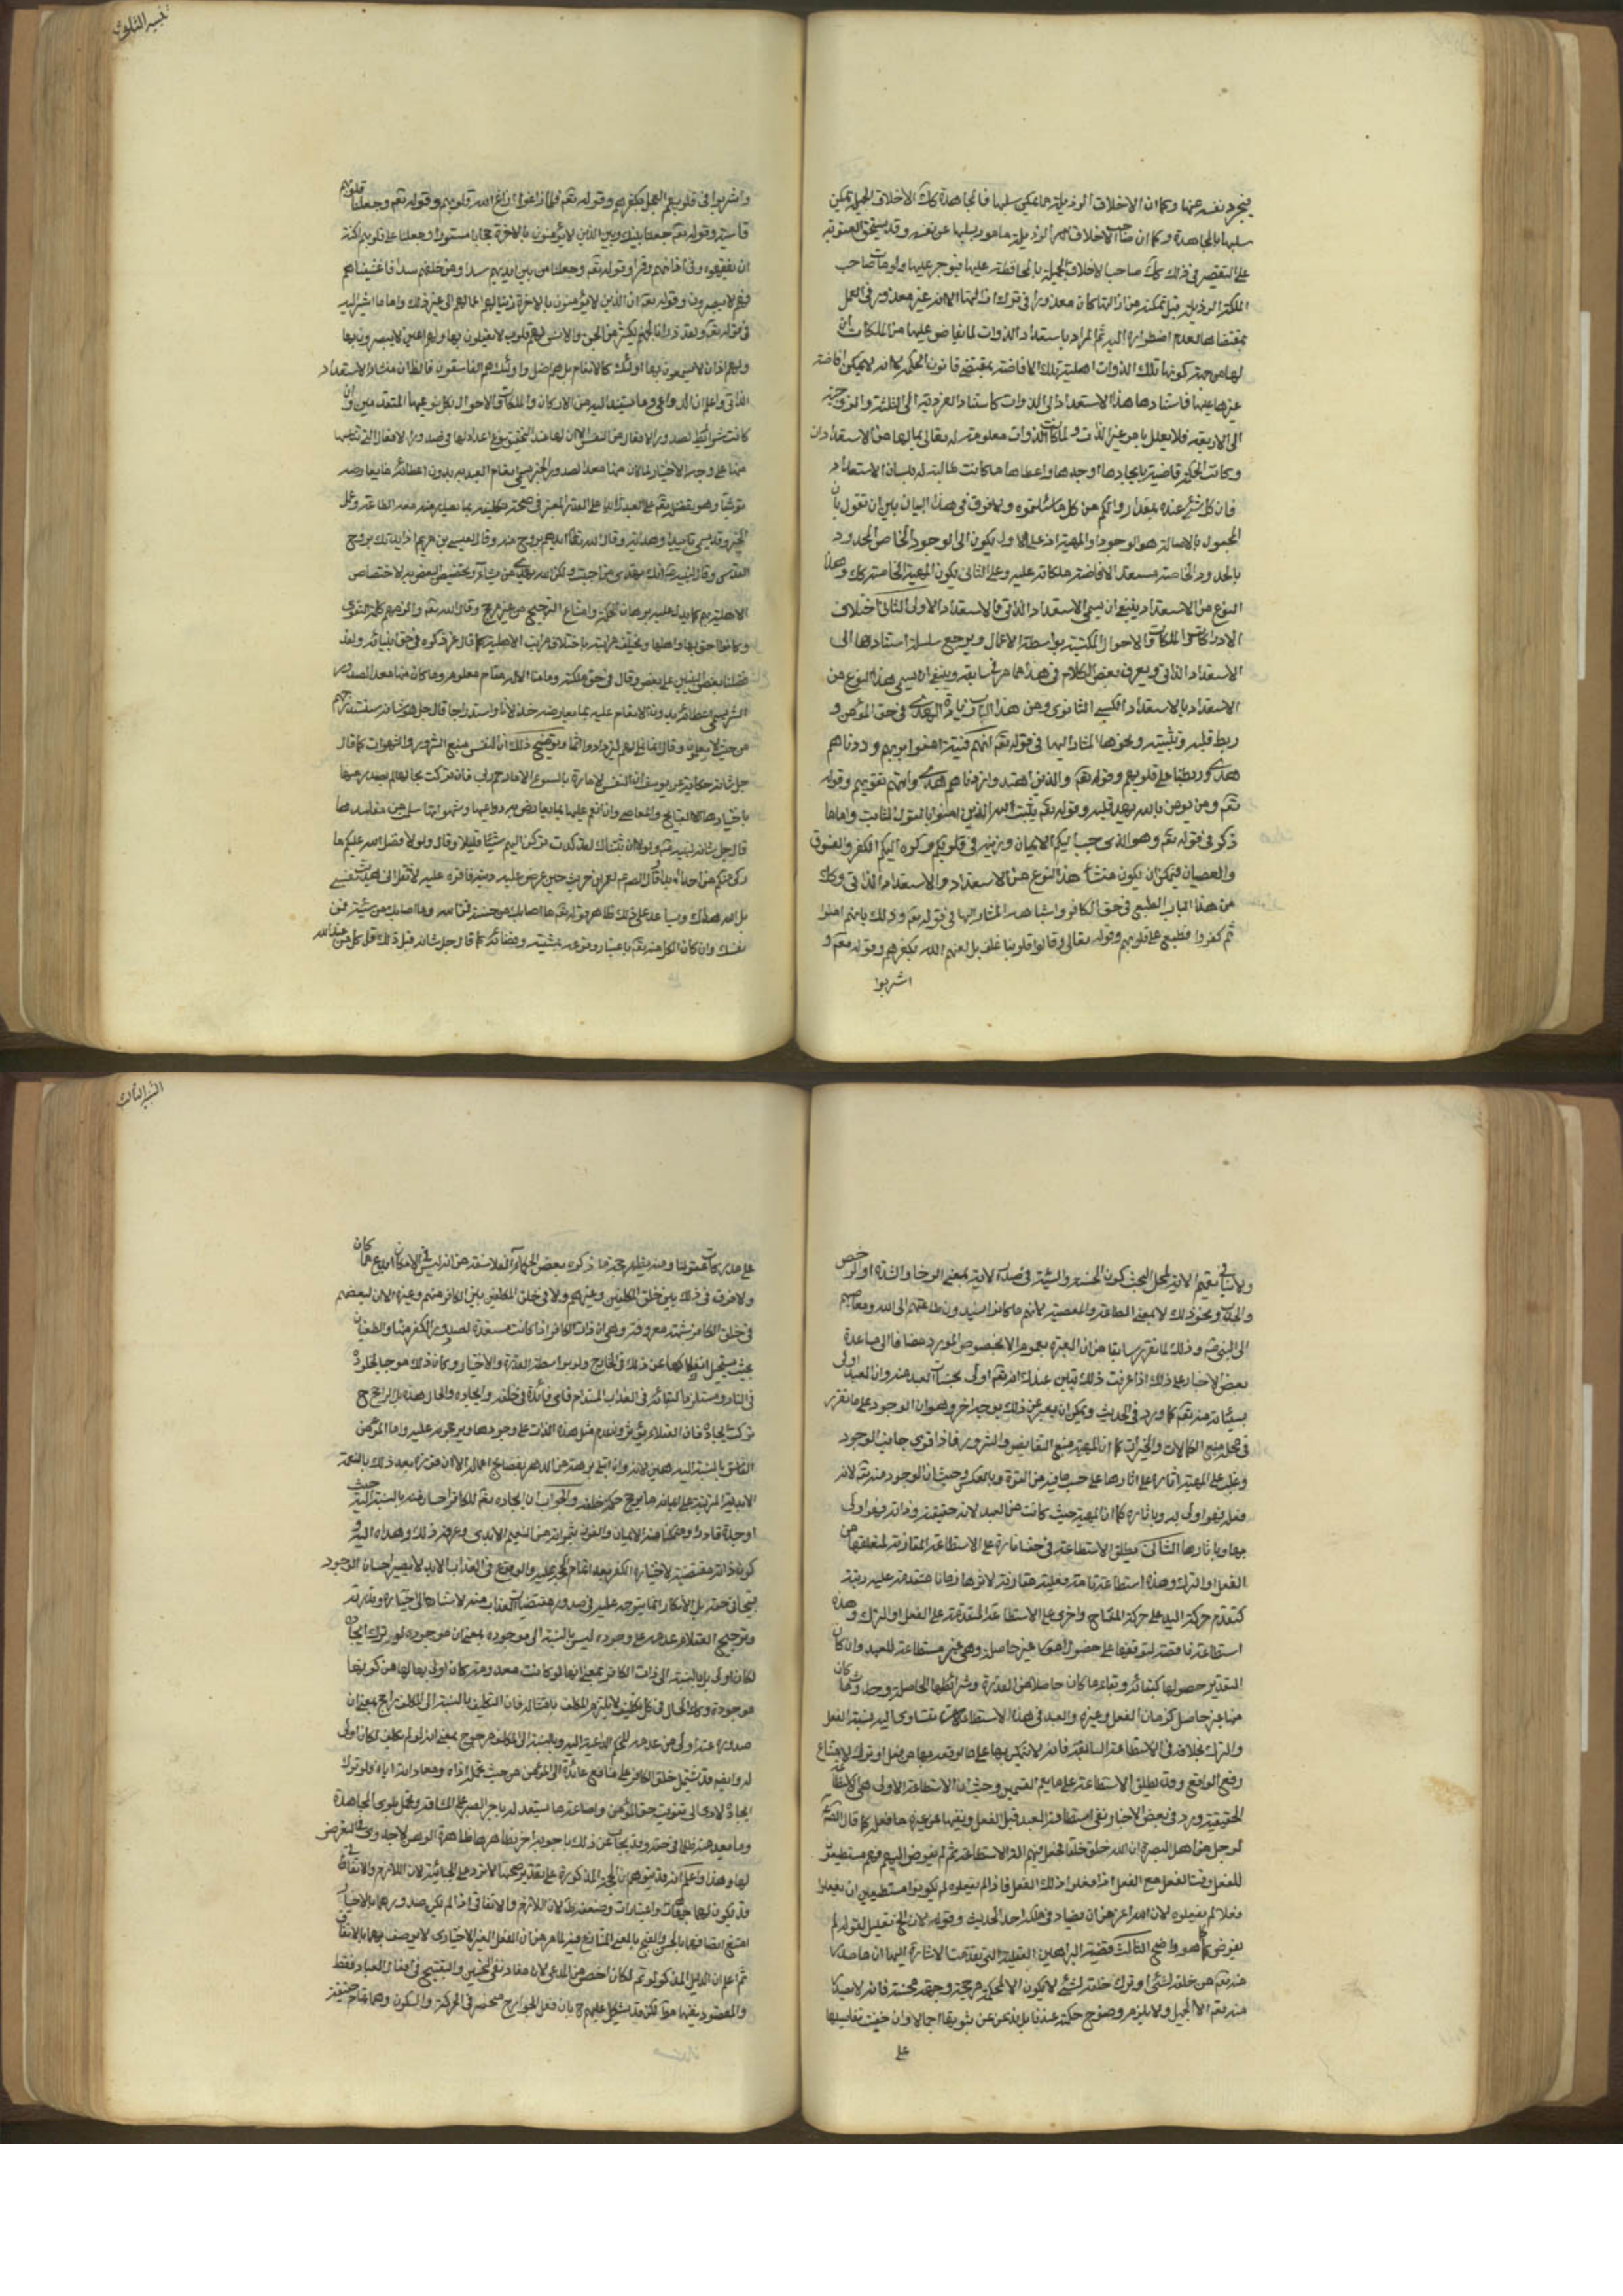 فينجرد نفسه عنها وكما ان الاخلاق الرذيلة مما يمكن سلبها فالمجاهدة كك الاخلاق الجميلة يمكن
سلبها بالمجاهدة وكما ان صاحب الاخلاق الرذيلة مامور بسلبها عن نفسه وقد يستحق العقوبة
على التقصير في ذلك كك صاحب الاخلاق الجميلة بالمحافظة عليها فيوجر عليها
الملكة الرذيلة قبل تمكنه من ازالتها كان معذورا في ترك ازالتها الا انه غير معذور في العمل
بمقتضاها لعدم اضطراره اليه ثم المراد باستعداد الذوات لما يفاض عليها من الملكات
لها من جهة كونها تلك الذوات اهلية تلك الافاضة بمقتضى قانون الحكمة لا انه لا يمكن افاضة
غيرها عليها فاستنادها هذا الاستعداد الى الذوات كاستناد الفردية الى الثلثة والزوجية
الى الاربعة فلا يعلل بامر غير الذات ولما كانت الذوات معلومة له تعالى بما لها من الاستعدادات
وكانت الحكمة قاضية بايجادها اوجدها واعطاها ما كانت طالبة له بلسان الاستعداد
فان كل شيء عنده بمقدار واتيكم من كل ما سئلتموه ولا فرق في هذا البيان بين ان نقول بان
المجعول بالاصالة هو الوجود او المهية اذ على الاول يكون الى الوجود الخاص المحدود
بالحدود الخاصة مستعد لافاضة ملكاته عليه وعلى الثاني يكون المهية الخاصة كك وهذا
النوع من الاستعداد ينبغي ان يسمى الاستعداد الذاتي والاستعداد الاولى الثاني اختلاف
الادراكات والملكات والاحوال المكتسبة بواسطة الاعمال ويرجع سلسلة استنادها الى
الاستعداد الذاتي ويعرف بعض الكلام في هذا مما مر في سابقه وينبغي ان يسمى هذا النوع من
الاستعداد بالاستعداد الكسبي الثانوي ومن هذا الباب زيادة الهدى في حق المؤمن و
ربط قلبه وتثبيته ونحوها المشار اليها في قوله تعم انهم فتية امنوا بربهم وزدناهم
هدى وربطنا على قلوبهم وقوله تعم والذين اهتدوا زادهم هدى واتيهم تقويهم وقوله
تعم ومن يومن بالله يهد قلبه وقوله تعم يثبت الله الذين امنوا بالقول الثابت واما ما
ذكر في قوله تعم وهو الذي حبب اليكم الايمان وزينه في قلوبكم وكره اليكم الكفر والفسوق
والعصيان فيمكن ان يكون منشأ هذا النوع من الاستعداد والاستعداد الذاتي وكك
من هذا الباب الطبع في حق الكافر واشباهه المشار اليها في قوله تعم وذلك بانهم امنوا
ثم كفروا فطبع على قلوبهم وقوله تعالى وقالوا قلوبنا غلف بل لعنهم الله بكفرهم وقوله تعم و
اشربوا
واشربوا في قلوبهم العجل بكفرهم وقوله تعم فلما زاغوا ازاغ الله قلوبهم وقوله تعم وجعلنا قلوبهم
قاسية وقوله تعم جعلنا بينك وبين الذين لا يؤمنون بالاخرة حجابا مستورا وجعلنا على قلوبهم اكنة
ان يفقهوه وفي اذانهم وقرا وقوله تعم وجعلنا من بين ايديهم سدا ومن خلفهم سدا فاغشيناهم
فهم لا يبصرون وقوله تعم ان الذين لا يؤمنون بالاخرة زينا لهم اعمالهم الى غير ذلك واما ما اشير اليه
في قوله تعم ولقد ذرانا لجهنم كثيرا من الجن والانس لهم قلوب لا يفقهون بها ولهم اعين لا يبصرون بها
ولهم اذان لا يسمعون بها اولئك كالانعام بل هم اضل واولئك هم الفاسقون فالظان منشاؤه الاستعداد
الذاتي واعلم ان الدواعي وما يستند اليه من الادراكات والملكات والاحوال بكل نوعيها المتقدمين وان
كانت شرائط لصدور الافعال من النفس الا ان لها عند التحقيق نوع اعداد لها في صدور الافعال
منها على وجه الاختيار
توفيقا وهو تفضل منه تعم على العبد
الخير وقد يسمى تاييدا وهداية وقال الله تعم ايدهم بروح منه وقال لعيسى بن مريم اذ ايدتك بروح
القدس وقال لنبيه انك لا تهدي من احببت ولكن الله يهدي من يشاء وتخصيص البعض به لاختصاص
الاهلية بهم كما يدل عليه برهان الحكمة وامتناع الترجيح من غير مرجح وقال الله تعم والزمهم كلمة التقوى
وكانوا احق بها واهلها وتختلف مراتبه باختلاف مراتب الاهلية كما قال عز ذكره في حق انبيائه ولقد
فضلنا بعض النبيين على بعض وقال في حق ملئكته وما منا الا له مقام معلوم وما كان منها معدا لصدور
الشر يسمى اعطائه بدون الانعام عليه بما يعارضه خذلانا واستدراجا قال جل شانه سنستدرجهم
من حيث لا يعلمون وقال انما نملي لهم ليزدادوا اثما وتوضيح ذلك ان النفس منبع الشرور والشهوات كما قال
جل شانه حكاية عن يوسف ان النفس لامارة بالسوء الا ما رحم ربي فان تركت بحالها لم يصدر عنها
باختيارها الا القبايح والمعاصي وان انعم عليها بما يعارض دواعيها وشهواتها سلمت من مفاسدها
قال جل شانه لنبيه ولولا ان ثبتناك لقد كدت تركن اليهم شيئا قليلا وقال ولولا فضل الله عليكم ما
زكى منكم من احد ابدا
بل الله هداك ويساعد على ذلك ظاهر قوله تعم ما اصابك من حسنة فمن الله وما اصابك من سيئة فمن
نفسك وان كان الكل منه تعم باعتبار وقوعه بمشيته وقضائه كما قال جل شانه قبل ذلك قل كل من عند الله
ولا ينافي تعميم الاية لمحل البحث كون الحسنة والسيئة في صدر الاية بمعنى الرخا والشدة او الرخص
ونحو ذلك لا بمعنى الطاعة والمعصية لانهم ما كانوا يسندون طاعتهم الى الله ومعاصيهم
الى النبي ص وذلك لما تقرر سابقا من ان العبرة بعموم اللفظ لا بخصوص المورد مضافا الى مساعدة
بعض الاخبار على ذلك اذا عرفت ذلك تبين عندك انه تعم اولى بحسنات العبد منه وان العبد اولى
بسيئاته منه تعم كما ورد في الحديث ويمكن ان يعبر عن ذلك بوجه اخر وهو ان الوجود على ما تقرر
في محله منبع الكمالات والخيرات كما ان المهية منبع النقايص والشرور فاذا قوى جانب الوجود
وغلب على المهية اثاره على اثارها على حسب ما فيه من القوة وبالعكس وحيث ان الوجود منه تعم لانه
فعله فهو اولى به وباثاره كما ان المهية حيث كانت من العبد لانه حقيقته وذاته فهو اولى
بها وباثارها الثاني يطلق الاستطاعة في حقنا تارة على الاستطاعة المقارنة لمتعلقها من
الفعل او الترك وهذه استطاعة تامة فعلية مقارنة لاثرها زمانا متقدمة عليه رتبة
كتقدم حركة اليد على حركة المفتاح واخرى على الاستطاعة المتقدمة على الفعل او الترك وهذه
استطاعة ناقصة لتوقفها على حضور امور غير حاصلة وهي غير مستطاعة للعبد وان كان
التقدير حصولها كبقائه وبقاء ما كان حاصلا من القدرة وشرائطها الحاصلة وحدوث ما كان
منها غير حاصل كزمان الفعل وغيره والعبد في هذا الاستطاعة يتساوى اليه نسبة الفعل
والترك بخلافه في الاستطاعة السابقة فانه لا يتمكن بها على ما يقع بها من فعل او ترك لامتناع
رفع الواقع وقد يطلق الاستطاعة على ما يعم القسمين وحيث ان الاستطاعة الاولى هي الاستطاعة
الحقيقية ورد في بعض الاخبار نفي استطاعة العبد قبل الفعل ونفيها عن غير ما فعل كما قال الصادق
لرجل من اهل البصرة ان الله خلق خلقا فجعل فيهم الة الاستطاعة ثم لم يفوض اليهم فهم مستطيعون
للفعل وقت الفعل مع الفعل اذا فعلوا ذلك الفعل فاذا لم يفعلوه لم يكونوا مستطيعين ان يفعلوا
فعلا لم يفعلوه لان الله اعز من ان يضاده في ملكه احد الحديث وقوله لان الخ تعليل لقوله لم
يفوض كما هو واضح الثالث قضية البراهين العقلية التي تقدمت الاشارة اليها ان ما صدر
منه تعم من خلقه لشيء او ترك خلقه لشيء لا يكون الا لحكمة مرجحة وجهة محسنة فانه لا يصدر
منه تعم الا الجميل ولا يلزم وضوح حكمته عندنا بل نذعن عن ثبوتها اجمالا وان خفيت تفاصيلها
على
على مدركات عقولنا ومنه يظهر صحة ما ذكره بعض الحكماء الفلاسفة من انه ليس في الامكان ابدع مما كان
ولا فرق في ذلك بين خلق المكلفين وغيرهم ولا في خلق المكلفين بين الكافر منهم وغيره الا ان لبعضهم
في خلق الكافر شبهة معروفة وهي ان ذات الكافر اذا كانت مستعدة لصدور الكفر منها والطغيان
بحيث يستحيل انفكاكها عن ذلك في الخارج ولو بواسطة القدرة والاختيار وكان ذلك موجبا لخلوده
في النار ومستلزما لبقائه في العذاب المستدام فاي فائدة في خلقه وايجاده والحال هذه بل الراجح ح
ترك ايجاده فان العقلاء يؤثرون عدم مثل هذه الذات على وجودها ويرجحونه عليه واما المؤمن
الفاسق بالنسبة اليه هين لانه وان ابتلى برهة من الدهر بفضايح اعماله الا ان فوزه بعد ذلك بالنعمة
الابدية المترتبة على ايمانه مما يرجح حكمة خلقه والجواب ان ايجاده تعم للكافر احسان منه بالنسبة اليه حيث
اوجده قادرا ومتمكنا من الايمان والفوز بثمراته من النعيم الابدي وعرفه ذلك وهداه اليه و
كون ذاته مقتضية لاختياره الكفر بعد اتمام الحجة عليه والوقوع في العذاب الابد لا يصير احسان الوجود
قبيحا في حقه بل الانكار انما يتوجه عليه في صدور مقتضيات العذاب منه لاستنادها الى اختياره وقدرته
وترجيح العقلاء عدمه على وجوده ليس بالنسبة الى موجده بمعنى ان موجده لو ترك ايجاده
لكان اولى بل بالنسبة الى ذات الكافر بمعنى انها لو كانت معدومة كان اولى بحالها من كونها
موجودة وكك الحال في كل تكليف لا يلتزم المكلف بامتثاله فان التكليف بالنسبة الى المكلف راجح بمعنى ان
صدوره عنه اولى من عدمه للحكم الداعية اليه وبالنسبة الى المكلف مرجوح بمعنى انه لو لم يكلف لكان اولى
له وايضا قد يشتمل خلق الكافر على منافع عائدة الى المؤمن من حيث تحمل اذاه ومعاداته اياه ولو ترك
ايجاده لادى الى تفويت حق المؤمن واضاعة ما يستعد له باجر الصبر على المشاق وتحمل بلوى المجاهدة
وما بعد منه ظلما في حقه وقد يجاب عن ذلك باجوبة اخر تظاهرها ظاهرة الوهن لا جدوى في التعرض
لها وهذا واعلم انه قد يتوهم ان الحجة المذكورة على تقدير صحتها لا ترد على الجبائية لان اللازم والاتفاق
قد يكون لهما جهات واعتبارات وضعفه ظ لان اللازم والاتفاقي اذا لم يكن صدورهما بالاختيار
امتنع اتصافهما بالحسن والقبح بالمعنى المتنازع فيه لما مر من ان الفعل الغير الاختياري لا يوصف بهما بالاتفاق
ثم اعلم ان الدليل المذكور لو تم لكان اخص من المدعى لان مفاده نفي التحسين والتقبيح في افعال العباد فقط
والمقصود نفيهما مطلقا لكن قد يشكل عليهم ح بان فعل الجوارح منحصر في الحركة والسكون وهما